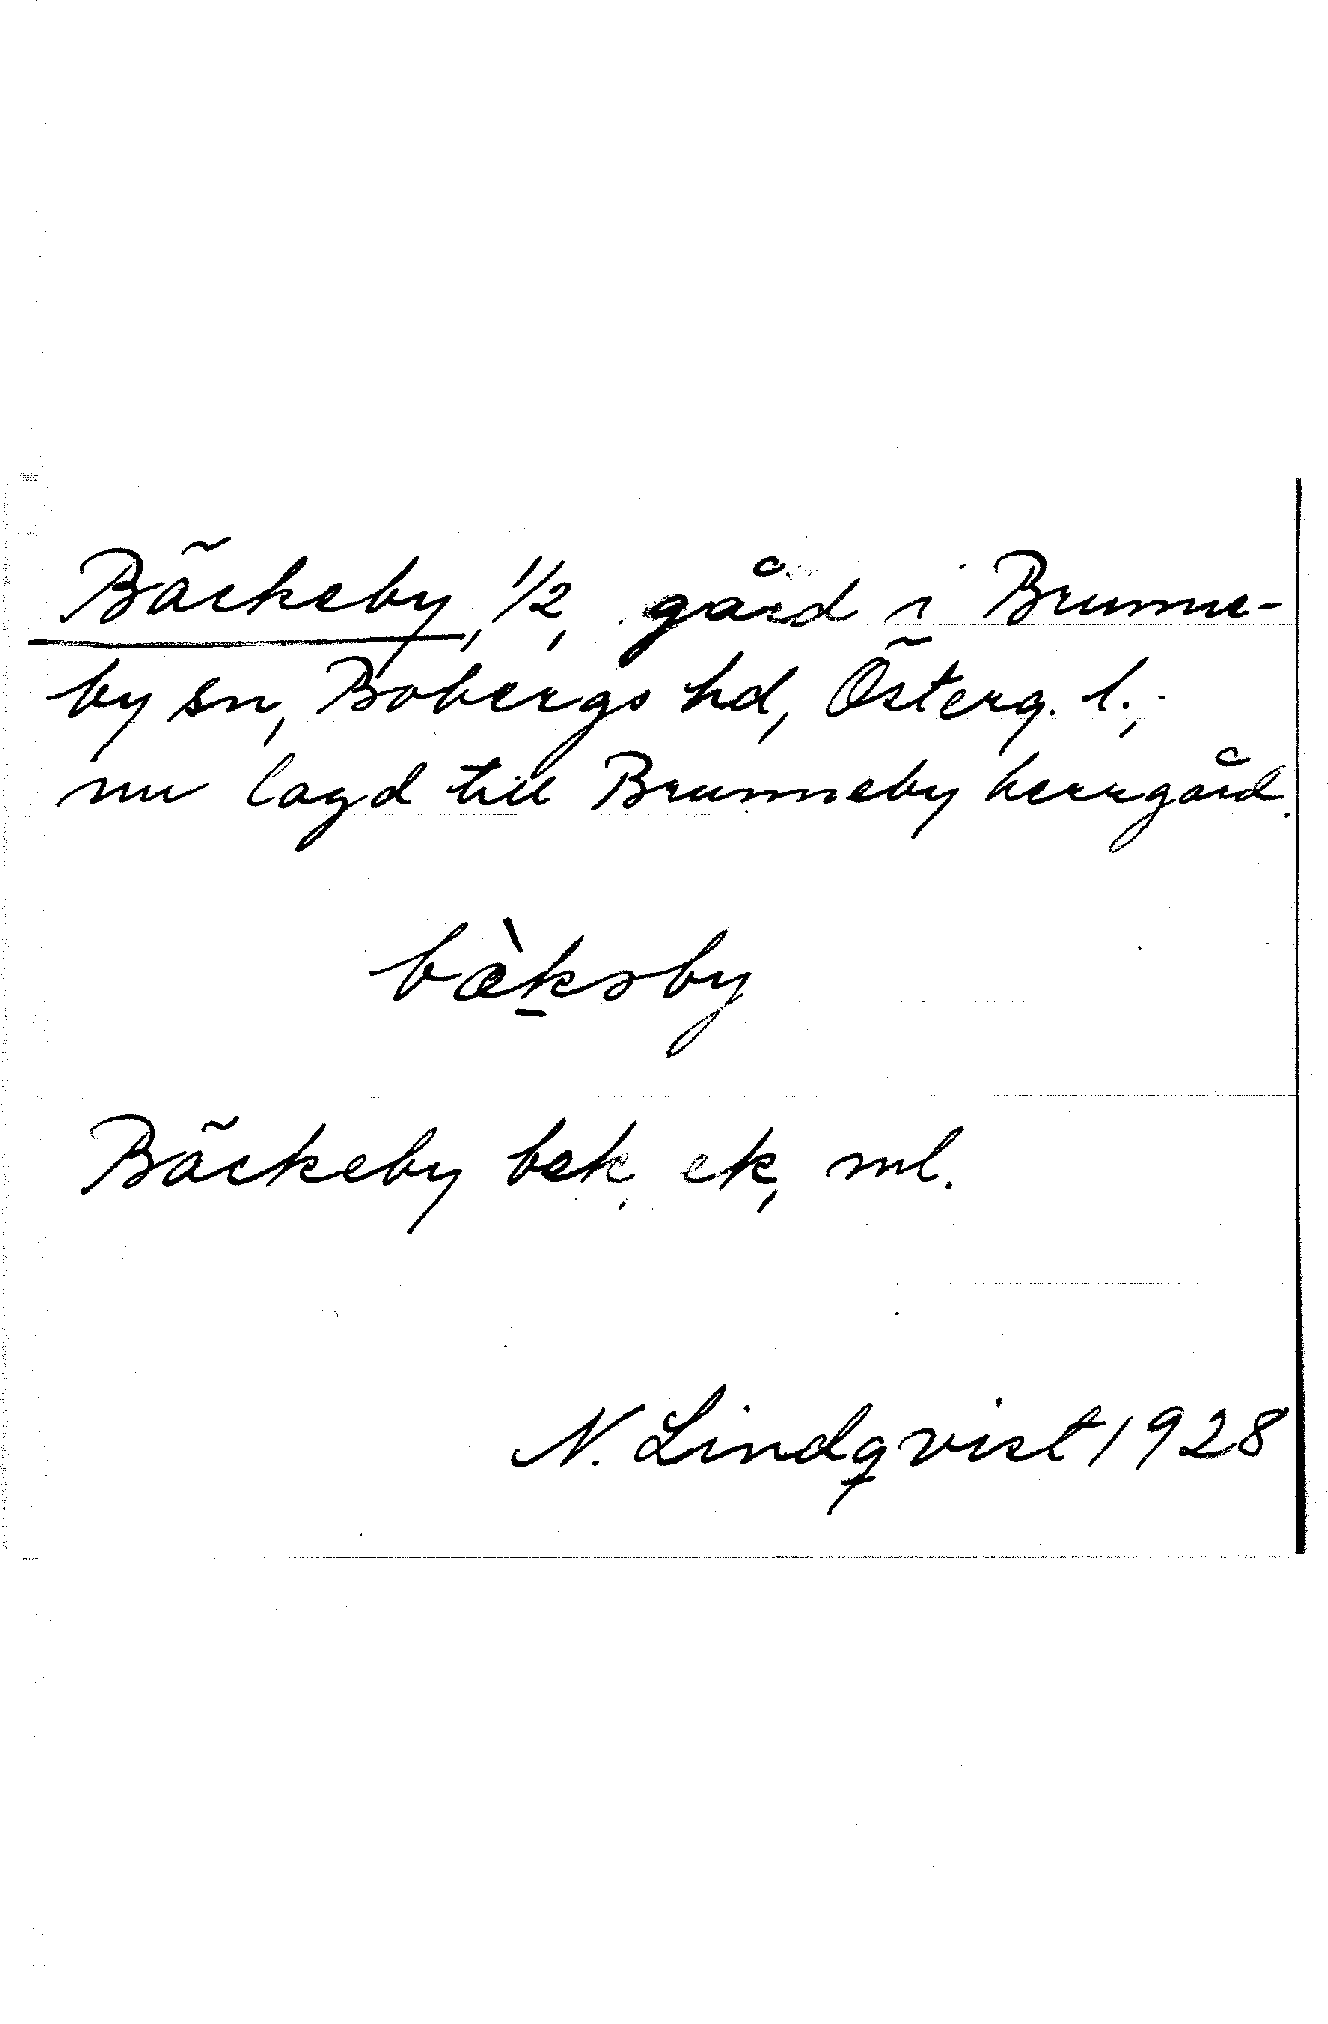 Bäckeby, 1/2, gård i Brunne-
by sn, Bobergs hd, Österg. l.,
nu lagd till Brunneby herrgård.
bæ̀k̲əby
Bäckeby bek, ek, ml.
N. Lindqvist 1928